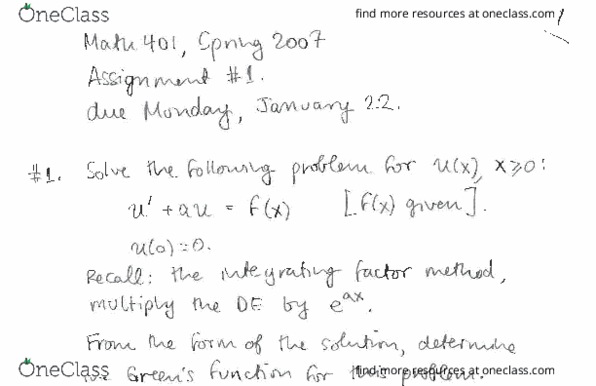 OneClass find more resources at oneclass.com 1
Math 401, Spring 2007
Assignment #1.
due Monday, January 22.
#1. Solve the following problem for u(x), x≥0:
u' + au = f(x) [f(x) given].
u(0)=0.
Recall: the integrating factor method,
multiply the DE by e^{ax}.
From the form of the solution, determine
OneClass Green's function for this problem.
find more resources at oneclass.com